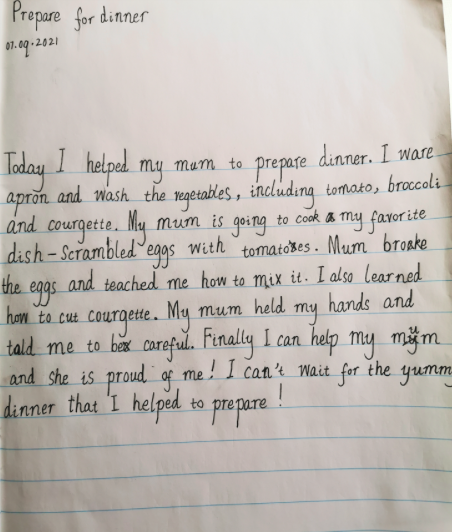 Prepare for dinner
07.09.2021
Today I helped my mum to prepare dinner. I ware
apron and wash the vegetables, including tomato, broccoli
and courgette. My mum is going to cook my favorite
dish-scrambled eggs with tomatoes. Mum broke
the eggs and teached me how to mix it. I also learned
how to cut courgette. My mum held my hands and
told me to be careful. Finally I can help my mum
and she is proud of me! I can't wait for the yumm
dinner that I helped to prepare!